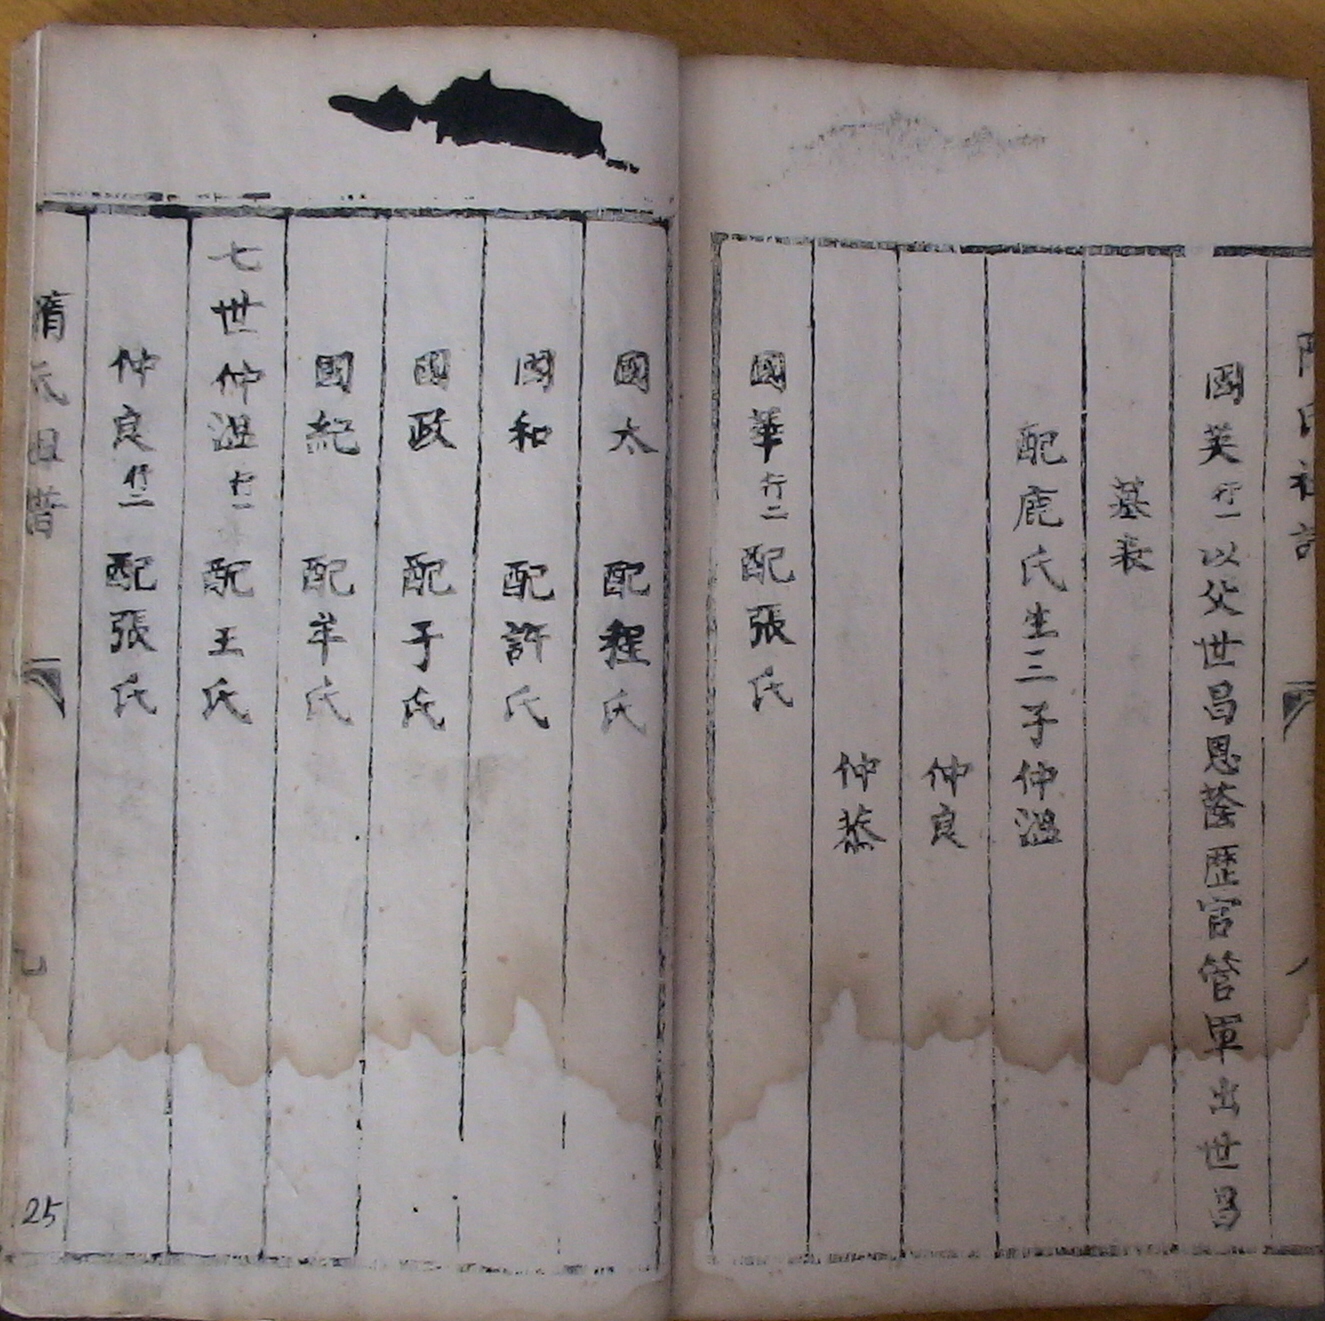 國英行一以父世昌恩蔭歷官管軍出世昌
墓表
配鹿氏生三子仲溫
仲良
仲恭
國華行二配張氏
國太 配程氏
國和 配許氏
國政 配于氏
國紀 配牟氏
七世仲溫行一 配王氏
仲良行二 配張氏
隋氏
九
25